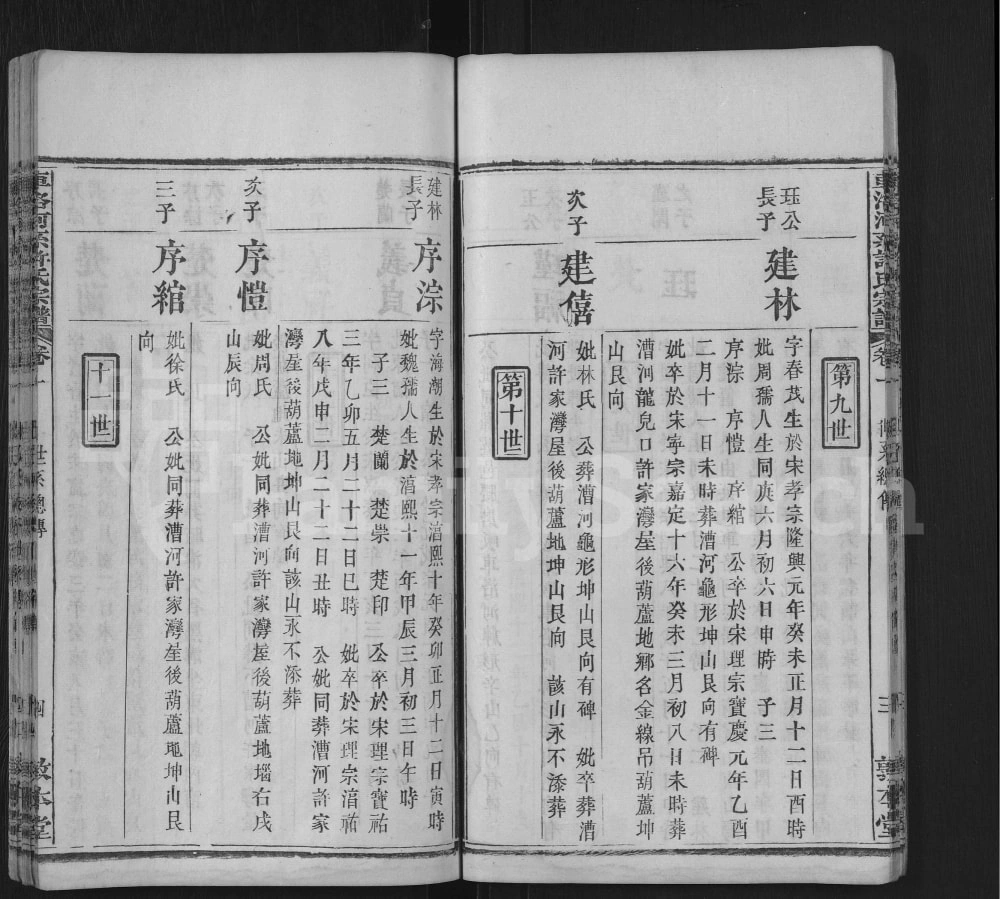 第九世
珏公
長子
建林
字春茂生於宋孝宗隆興元年癸未正月十二日酉時
妣周孺人生同庚六月初六日申時 子三
序淙 序愷 序綰 公卒於宋理宗寶慶元年乙酉
二月十一日未時葬漕河龜形坤山艮向有碑
妣卒於宋寧宗嘉定十六年癸未三月初八日未時葬
漕河龍兒口許家灣屋後葫蘆地鄉名金線吊葫蘆坤
山艮向
次子
建僖
妣林氏 公葬漕河龜形坤山艮向有碑 妣卒葬漕
河許家灣屋後葫蘆地坤山艮向 該山永不添葬
第十世
三
敦本堂
建林
長子
序淙
字海潮生於宋孝宗淳熙十年癸卯正月十二日寅時
妣魏孺人生於淳熙十一年甲辰三月初三日午時
子三 楚蘭 楚崇 楚印 公卒於宋理宗寶祐
三年乙卯五月二十二日巳時 妣卒於宋理宗淳祐
八年戊申二月二十二日丑時 公妣同葬漕河許家
灣屋後葫蘆地坤山艮向該山永不添葬
次子
序愷
妣周氏 公妣同葬漕河許家灣屋後葫蘆地塯右戌
山辰向
三子
序綰
妣徐氏 公妣同葬漕河許家灣屋後葫蘆地坤山艮
向
十一世
世系總傳
四
敦本堂